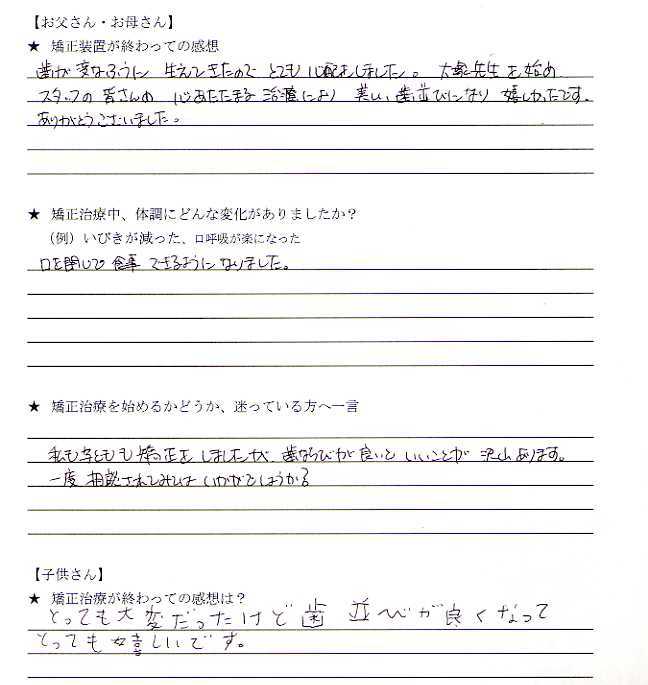 【お父さん・お母さん】
★ 矯正装置が終わっての感想
歯が変なふうに 生えてきたので とても心配をしました。 大塚先生を始め
スタッフの皆さんの 心あたたまる 治療により 美しい歯並びになり 嬉しかったです。
ありがとうございました。
★ 矯正治療中、体調にどんな変化がありましたか？
（例）いびきが減った、口呼吸が楽になった
口を閉じて 食事 できるように なりました。
★ 矯正治療を始めるかどうか、迷っている方へ一言
私も子どもも 矯正を しましたが、歯ならびが良いと いいことが 沢山あります。
一度 相談されてみては いかがでしょうか？
【子供さん】
★ 矯正治療が終わっての感想は？
とっても大変だったけど歯 並びが良くなって
とっても嬉しいです。